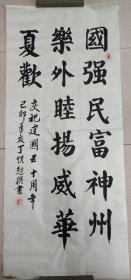 國强民富神州
樂外睦揚威華
夏歡
慶祝建國五十周年
己卯年
丁
撰書